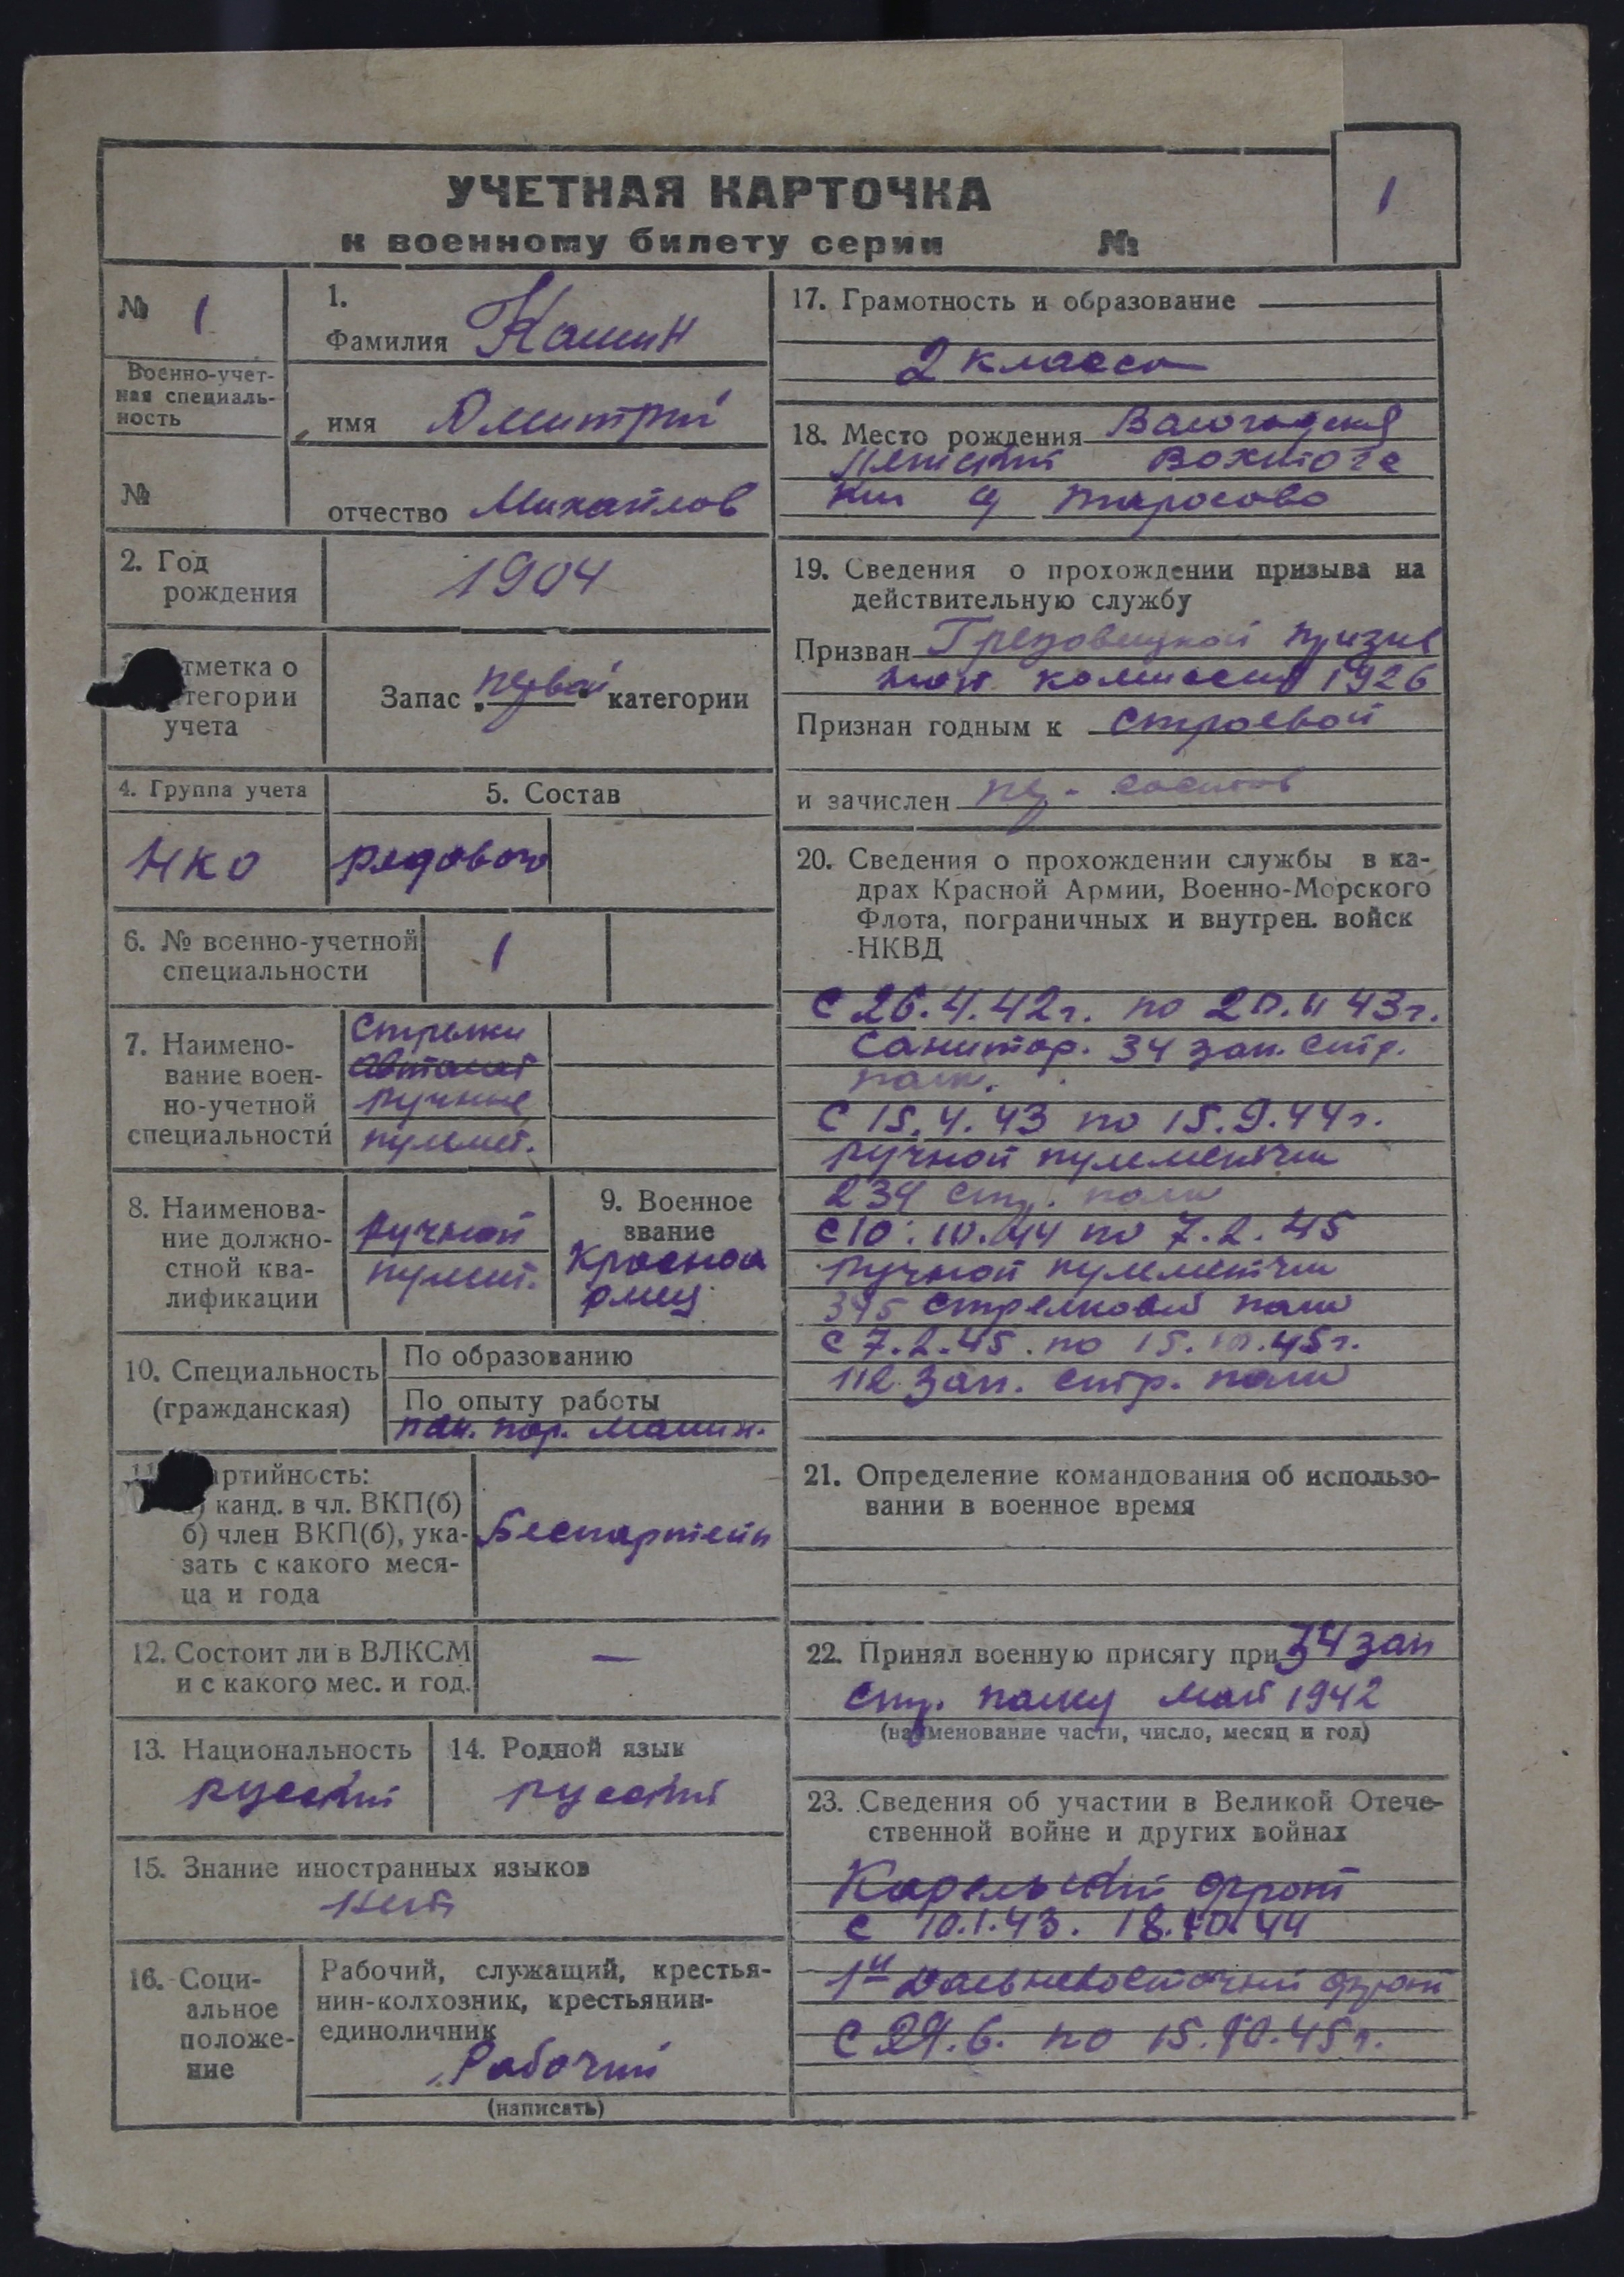 1
УЧЕТНАЯ КАРТОЧКА
к военному билету серии №
№ 1
Военно-учет-
ная специаль-
ность
№
1.
Фамилия Кашин
имя Дмитрий
отчество Михайлов
2. Год
рождения
1904
тметка о
тегории
учета
Запас первой категории
4. Группа учета
НКО
5. Состав
рядового
6. № военно-учетной
специальности
1
7. Наимено-
вание воен-
но-учетной
специальности
Стрелки
ручные
пулемет.
8. Наименова-
ние должно-
стной ква-
лификации
ручной
пулемт.
9. Военное
звание
Красноа
рмец
10. Специальность
(гражданская)
По образованию
По опыту работы
пар. машин.
артийность:
а) канд. в чл. ВКП(б)
б) член ВКП(б), ука-
зать с какого меся-
ца и года
Беспартейн
12. Состоит ли в ВЛКСМ
и с какого мес. и год.
—
13. Национальность
русский
14. Родной язык
русский
15. Знание иностранных языков
нет
16. Соци-
альное
положе-
ние
Рабочий, служащий, крестья-
нин-колхозник, крестьянин-
единоличник
Рабочий
(написать)
17. Грамотность и образование
2 класса
18. Место рождения Вологодская
Вохтога
д Тарасово
19. Сведения о прохождении призыва на
действительную службу
Призван Грязовецкой призыв
комиссия 1926
Признан годным к строевой
и зачислен состав
20. Сведения о прохождении службы в ка-
драх Красной Армии, Военно-Морского
Флота, пограничных и внутрен. войск
НКВД
С 26.4.42г. по 43г.
Санитар. 34 зап. стр.
полк.
С 15.4.43 по 15.9.44г.
ручной пулеметчик
234 стр. полк
С 10.10.44 по 7.2.45
ручной пулеметчик
стрелковый полк
С 7.2.45. по 15.10.45г.
112 зап. стр. полк
21. Определение командования об использо-
вании в военное время
22. Принял военную присягу при 34 зап
стр. полку май 1942
(наименование части, число, месяц и год)
23. Сведения об участии в Великой Отече-
ственной войне и других войнах
Карельский фронт
С 10.1.43. 18.10.44
1й Дальневосточный фронт
С 29.6. по 15.10.45г.